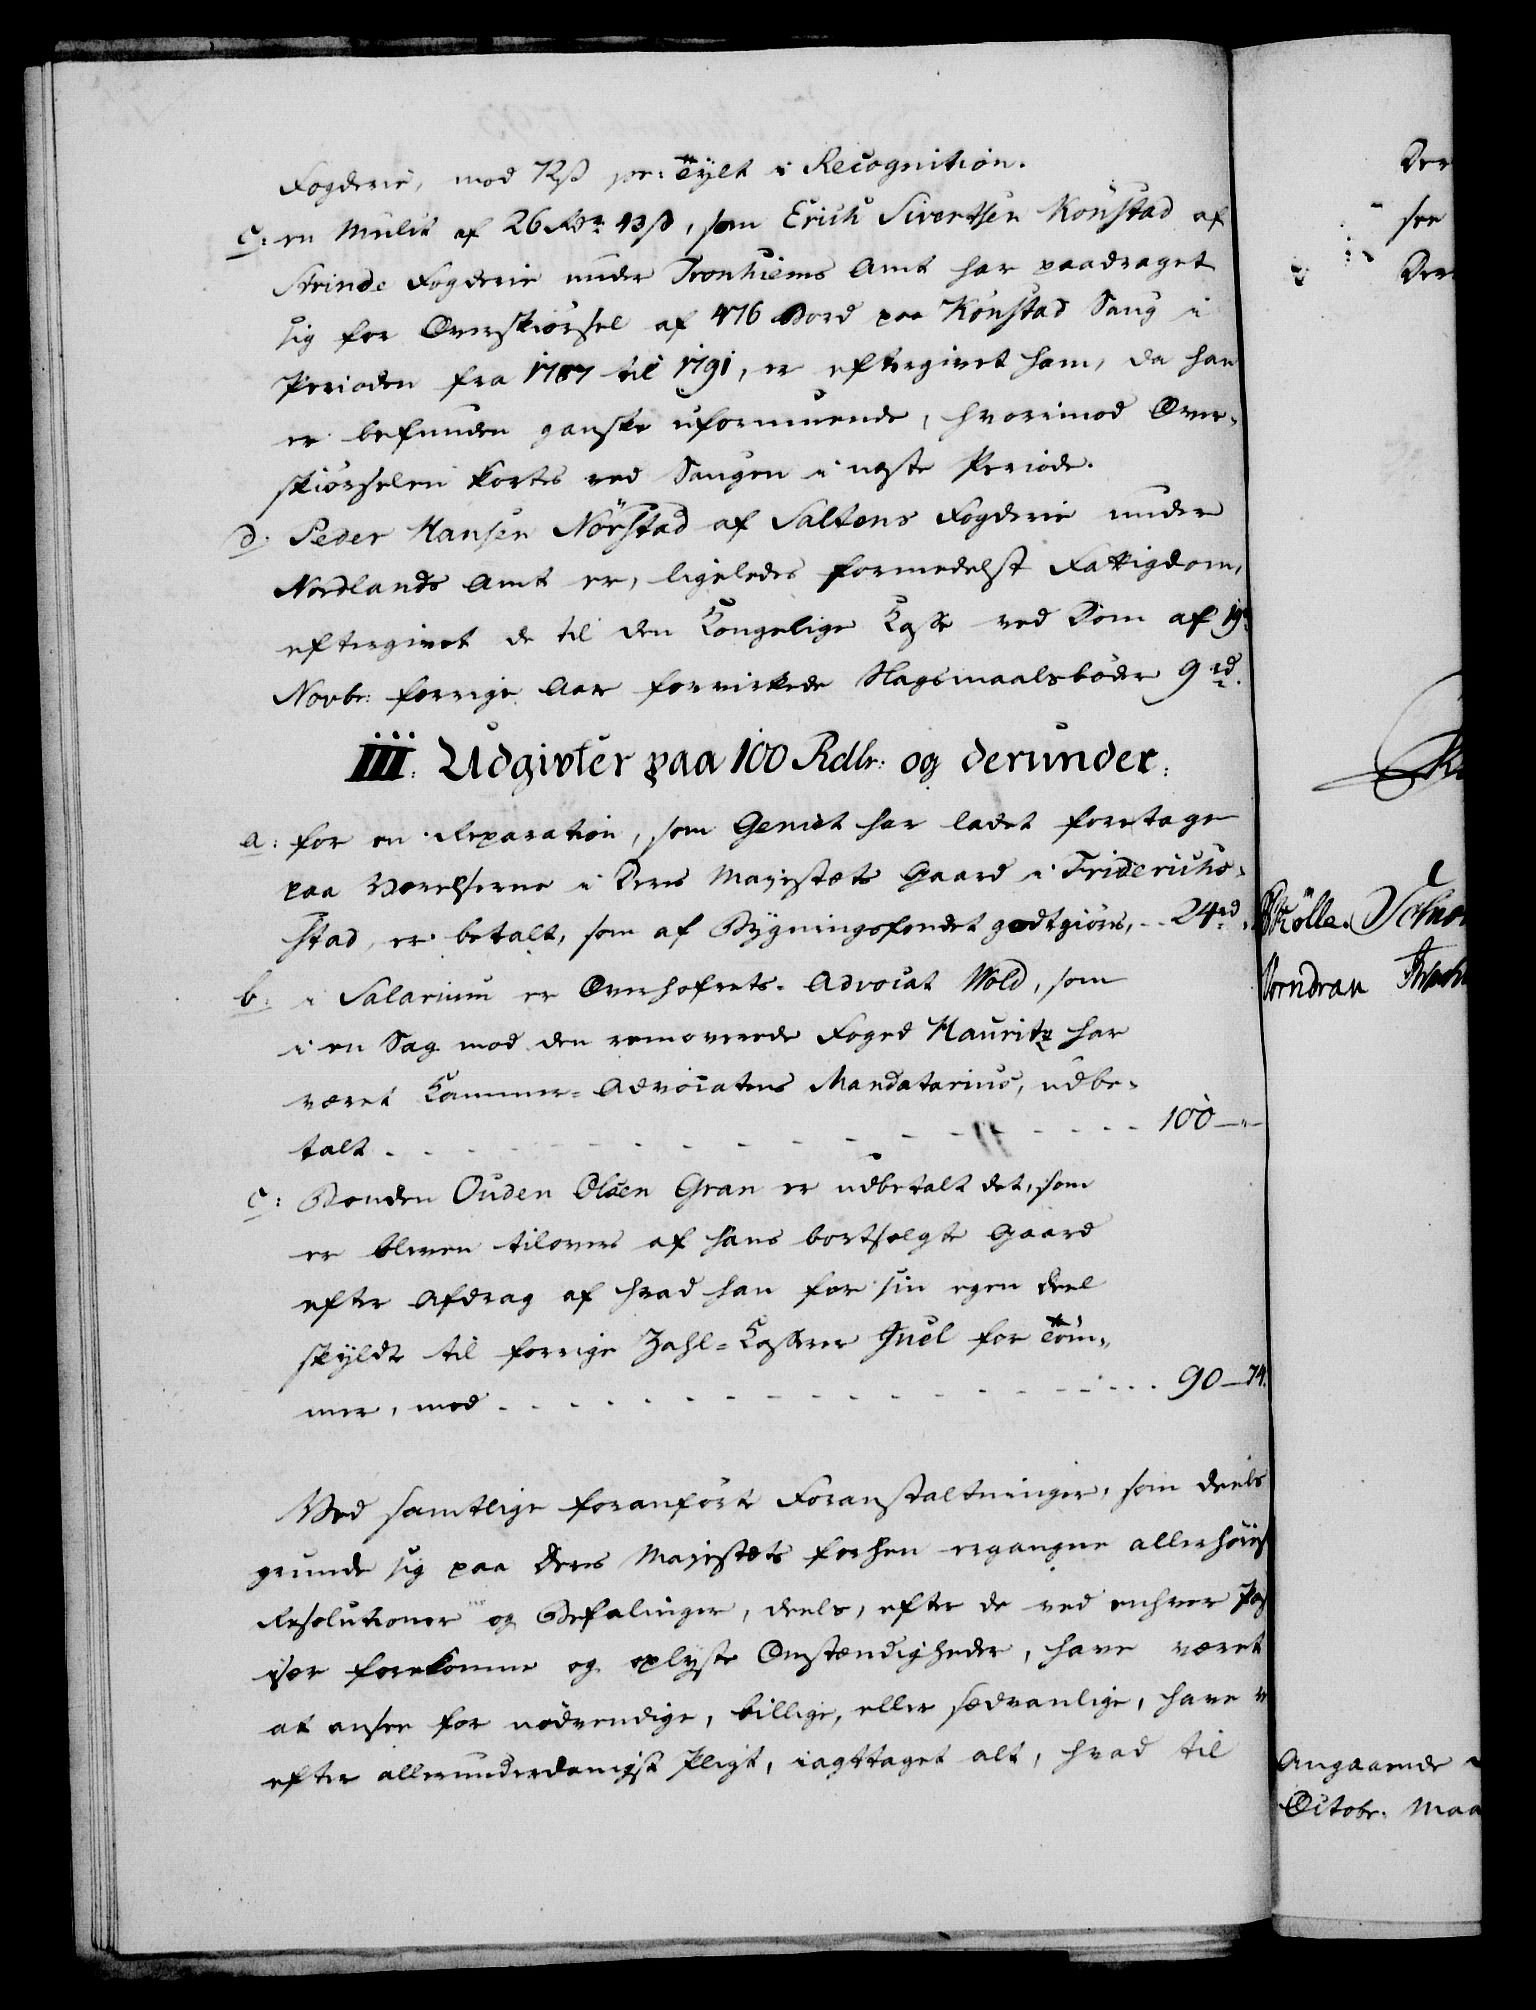 Fogderie, mod 12ß pr: Tylt i Recognition.
c: en Mulct af 26 Rdr 43ß, som Erich Sivertsen Konstad af
Strinde Fogderie under Tronhiems Amt har paadraget
sig for Overskiørsel af 476 Bord paa Konstad Saug i
Perioden fra 1787 til 1791, er eftergivet ham, da han
er befunden ganske uformuende, hvorimod Over-
skiørselen kortes ved Saugen i næste Periode.
d. Peder Hansen Nörstad af Saltens Fogderie under
Nordlands Amt er, ligeledes formedelst Fattigdom,
eftergivet de til den Kongelige Casse ved Dom af 19
Novbr: forrige Aar forvirkede Slagsmaalsbøder 9 rd.
III. Udgivter paa 100 Rdlr: og derunder:
a: for en Reparation, som Geniet har ladet foretage
paa Værelserne i Deres Majestæts Gaard i Friderichs-
stad, er betalt, som af Bygningsfondet godtgiøres, .. 24 rd
b: i Salarium er Overhofrets-Advocat Wold, som
i en Sag mod den removerede Foged Mauritz har
været Kammer-Advocatens Mandatarius, udbe-
talt . . . . . 100 — " —
c: Bonden Ouden Olsen Gran er udbetalt det, som
er bleven tilovers af hans bortsolgte Gaard
efter Afdrag af hvad han for sin egen Deel
skyldte til forrige Zahl-Casserer Juel for Töm-
mer, med . . . . . 90 — 74.
Ved samtlige foranførte Foranstaltninger, som deels
grunde sig paa Deres Majestæts forhen ergangne allerhøies
Resolutioner og Befalinger, deels, efter de ved enhver Pos
især forekomne og oplyste Omstændigheder, have været
at ansee for nødvendige, billige, eller sædvanlige, have v
efter allerunderdanigst Pligt, iagttaget alt, hvad til
Der
see
Der
Angaaende
Octobr: Maa